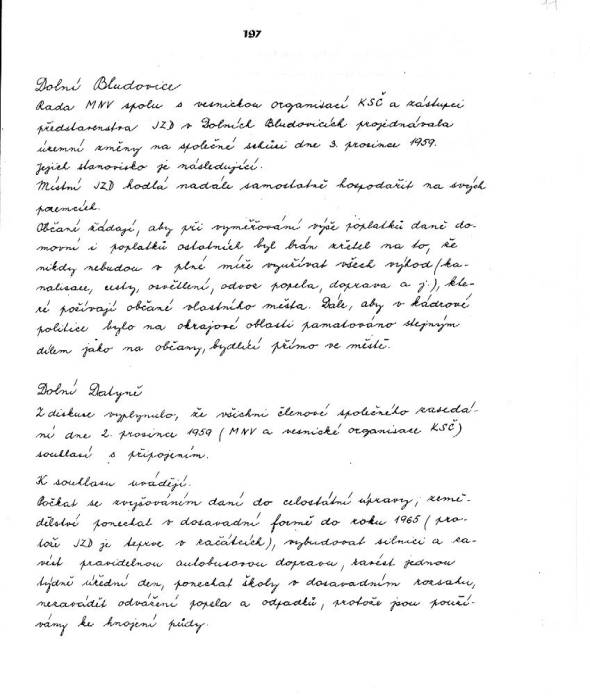 197
Dolní Bludovice
Rada MNV spolu s vesnickou organisací KSČ a zástupci
představenstva JZD v Dolních Bludovicích projednávala
územní změny na společné schůsi dne 3. prosince 1959.
Jejich stanovisko je následující.
Místní JZD hodlá nadále samostatně hospodařit na svých
pozemcích.
Občané žádají, aby při vyměřování výše poplatků daně do-
movní i poplatků ostatních byl brán zřetel na to, že
nikdy nebudou v plné míře využívat všech výhod (ka-
nalisace, cesty, osvětlení, odvoz popela, doprava a j.), kte-
ré požívají občané vlastního města. Dále, aby v kádrové
politice bylo na okrajové oblasti pamatováno stejným
dílem jako na občany, bydlící přímo ve městě.
Dolní Datyně
Z diskuse vyplynulo, že všichni členové společného zasedá-
ní dne 2. prosince 1959 (MNV a vesnické organisace KSČ)
souhlasí s připojením.
K souhlasu uvádějí.
Počkat se zvyšováním daní do celostátní úpravy, země-
dělství ponechat v dosavadní formě do roku 1965 (pro-
tože JZD je teprve v začátcích), vybudovat silnici a za-
vést pravidelnou autobusovou dopravu, zavést jednou
týdně úřední den, ponechat školy v dosavadním rozsahu,
nezavádět odvážení popela a odpadků, protože jsou použí-
vány ke hnojení půdy.